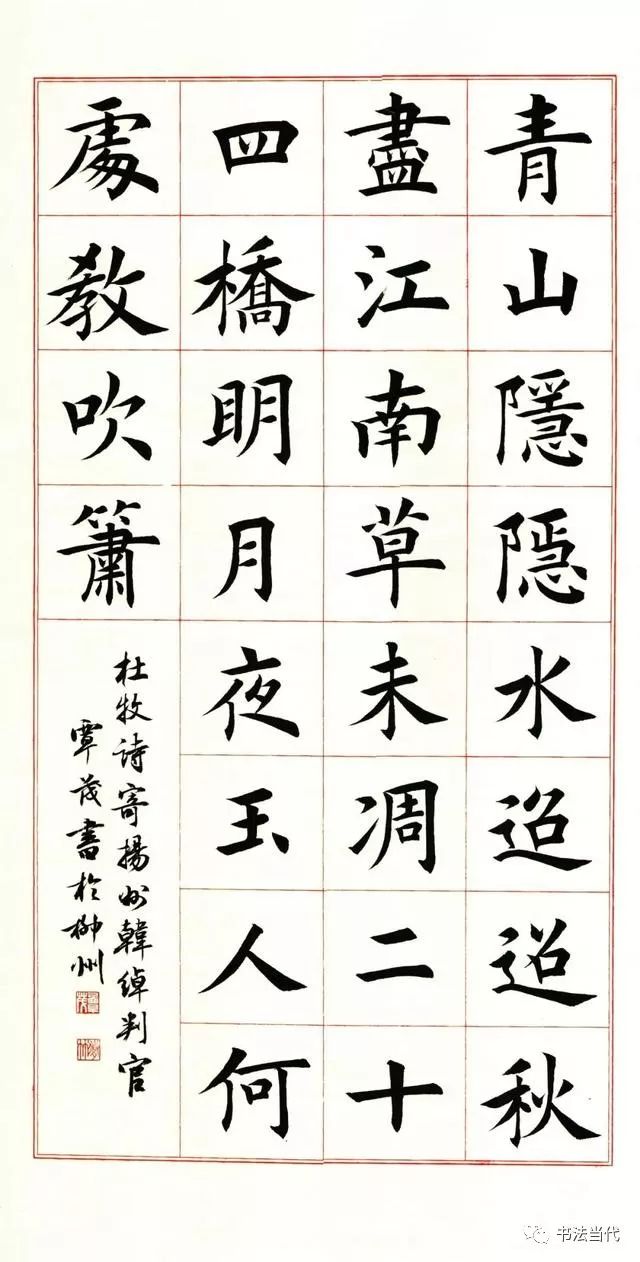 青山隱隱水迢迢秋
盡江南草未凋二十
四橋明月夜玉人何
處教吹簫
杜牧诗寄揚州韓綽判官
覃茂書於柳州
书法当代